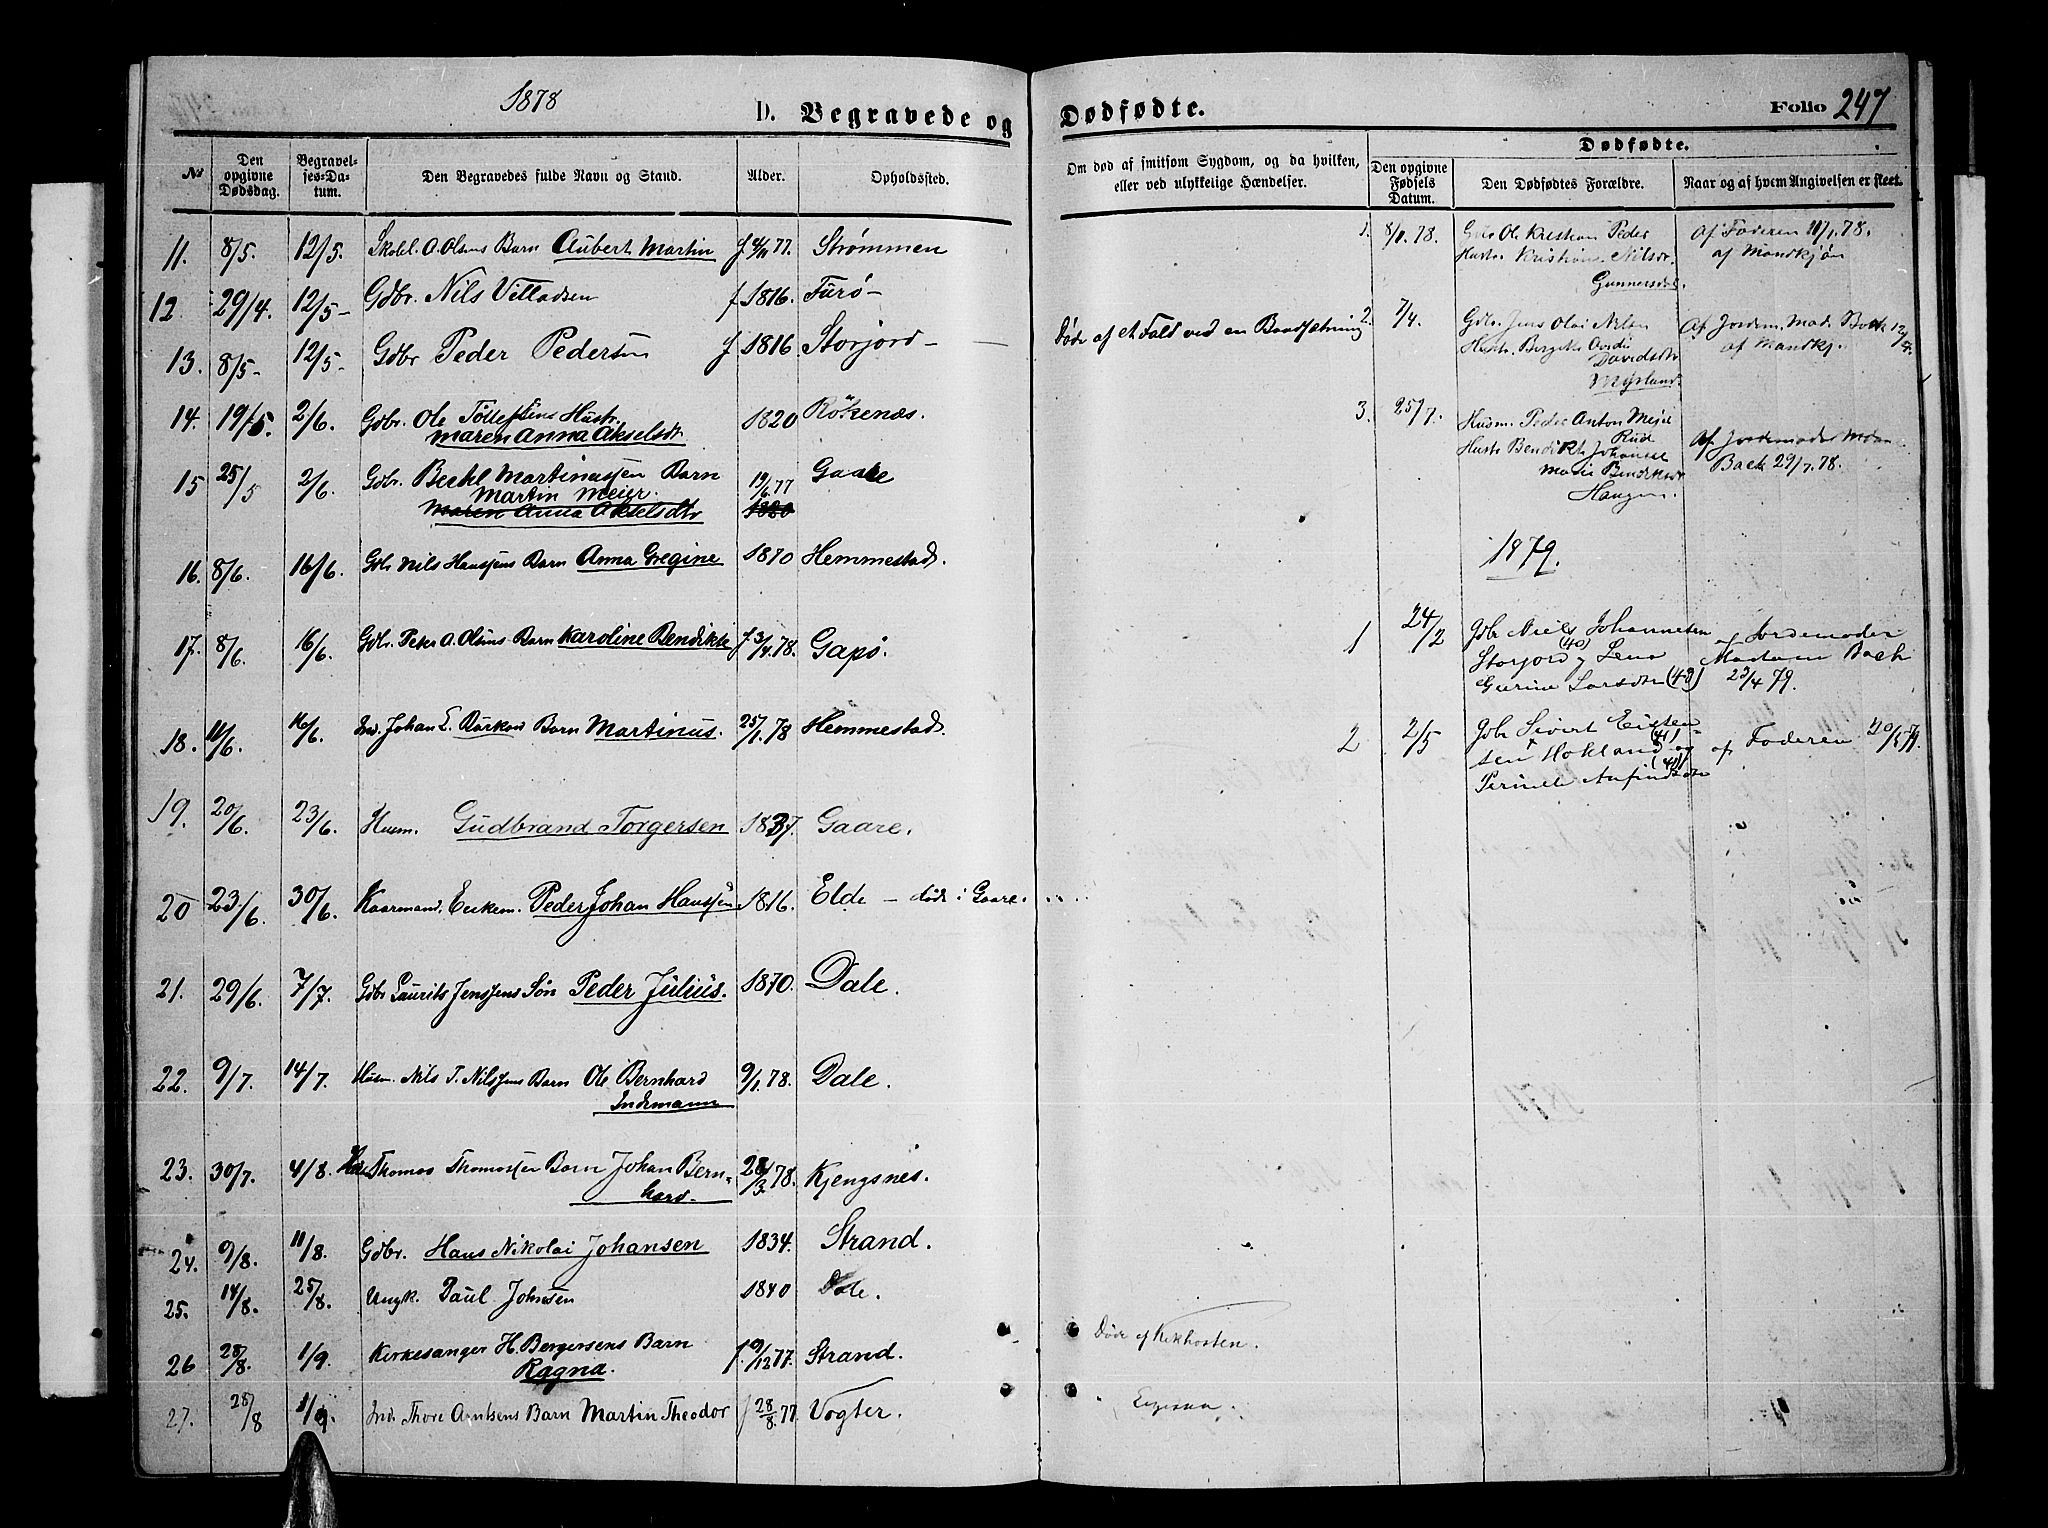 1878
D. Begravede og
Dødfødte.
Folio 247
No
Den opgivne Dødsdag.
Begravelses-Datum.
Den Begravedes fulde Navn og Stand.
Alder.
Opholdssted.
Om død af smitsom Sygdom, og da hvilken, eller ved ulykkelige Hændelser.
Dødfødte.
Den opgivne Fødsels Datum.
Den Dødfødtes Forældre.
Naar og af hvem Angivelsen er skeet.
11. 8/5. 12/5. Skobl. A. Olsens Barn Aubert Martin f 4/11 77. Strømmen
12 29/4. 12/5- Gdbr. Nils Villadsen f 1816. Furø-
13. 8/5- 12/5- Gdbr Peder Pedersen f 1816 Storjord- Døde af et Fald ved en Baadsætning
14. 19/5. 2/6. Gdbr. Ole Tollefsens Hustr.
Maren Anna Akselsdtr 1820 Rökenæs.
15 25/5 2/6. Gdbr. Berthl Martinussen Barn
Martin Meier. 19/6 77 Gaare
Maren Anna Akselsdtr 1820
16. 8/6. 16/6. Gdbr Nils Hanssens Barn Anna Gregine 1870 Hemmestad.
17. 8/6. 16/6. Gdbr. Peter A. Olsens Barn Karoline Bendikte f 3/4 78. Gapø.
18. 11/6. 16/6. Ind. Johan L. Barn Martinus. 25/1. 78 Hemmestad.
19. 20/6. 23/6. Husm. Gudbrand Torgersen 1837. Gaare.
20 23/6. 30/6. Kaarmand, Enkem. Peder Johan Hanssen 1816. Elde – døde i Gaare.
21. 29/6. 7/7. Gdbr Laurits Jenssens Søn Peder Julius. 1870. Dale.
22. 9/7. 14/7. Husm. Nils T. Nilssens Barn Ole Bernhard
Indemann 9/1. 78. Dale.
23. 30/7. 4/8. Thomas Thomassen Barn Johan Bern-
hard. 28/3 78. Kjengsnes.
24. 9/8. 11/8. Gdbr. Hans Nikolai Johansen 1834. Strand.
25. 14/8. 25/8. Ungk. Paul Johnsen 1840 Dale.
26 28/8. 1/9. Kirkesanger H. Bergersens Barn
Ragna. f. 9/12 77. Strand. Døde af Kikhosten.
27. 28/8 1/9. Ind. Thore Arntsens Barn Martin Theodor f 28/8. 77 Vogter.
1. 8/1. 78. Gdbr Ole Kristian Peder
Hustr. Kristians Nilsdr.
Gunnersdal.
Af Faderen 11/1. 78.
af Mandkjøn
2. 7/4. Gdbr. Jens Olai Nilsen
Hustr. Bergete
Davidsdtr
Myrland.
Af Jordem. Mad. Back 12/4.
af Mandkj.
3. 25/7. Husm. Peder Anton Meier
Hustr Bendikte Johanse
Marie Bendiksdr
Haugen.
Af Jordemoder Madam
Back 29/7. 78.
1879.
1 24/2 Gdbr Niels Johannesen
Storjord (40) og Lena
Gurine Larsdtr (42)
af Jordemoder
Madam Back
23/4 79.
2 2/5 Gdbr Sivert Eisten-
sen Hokland (41) og
Pernele Anfindsdtr (41)
af Faderen 20/5 79.